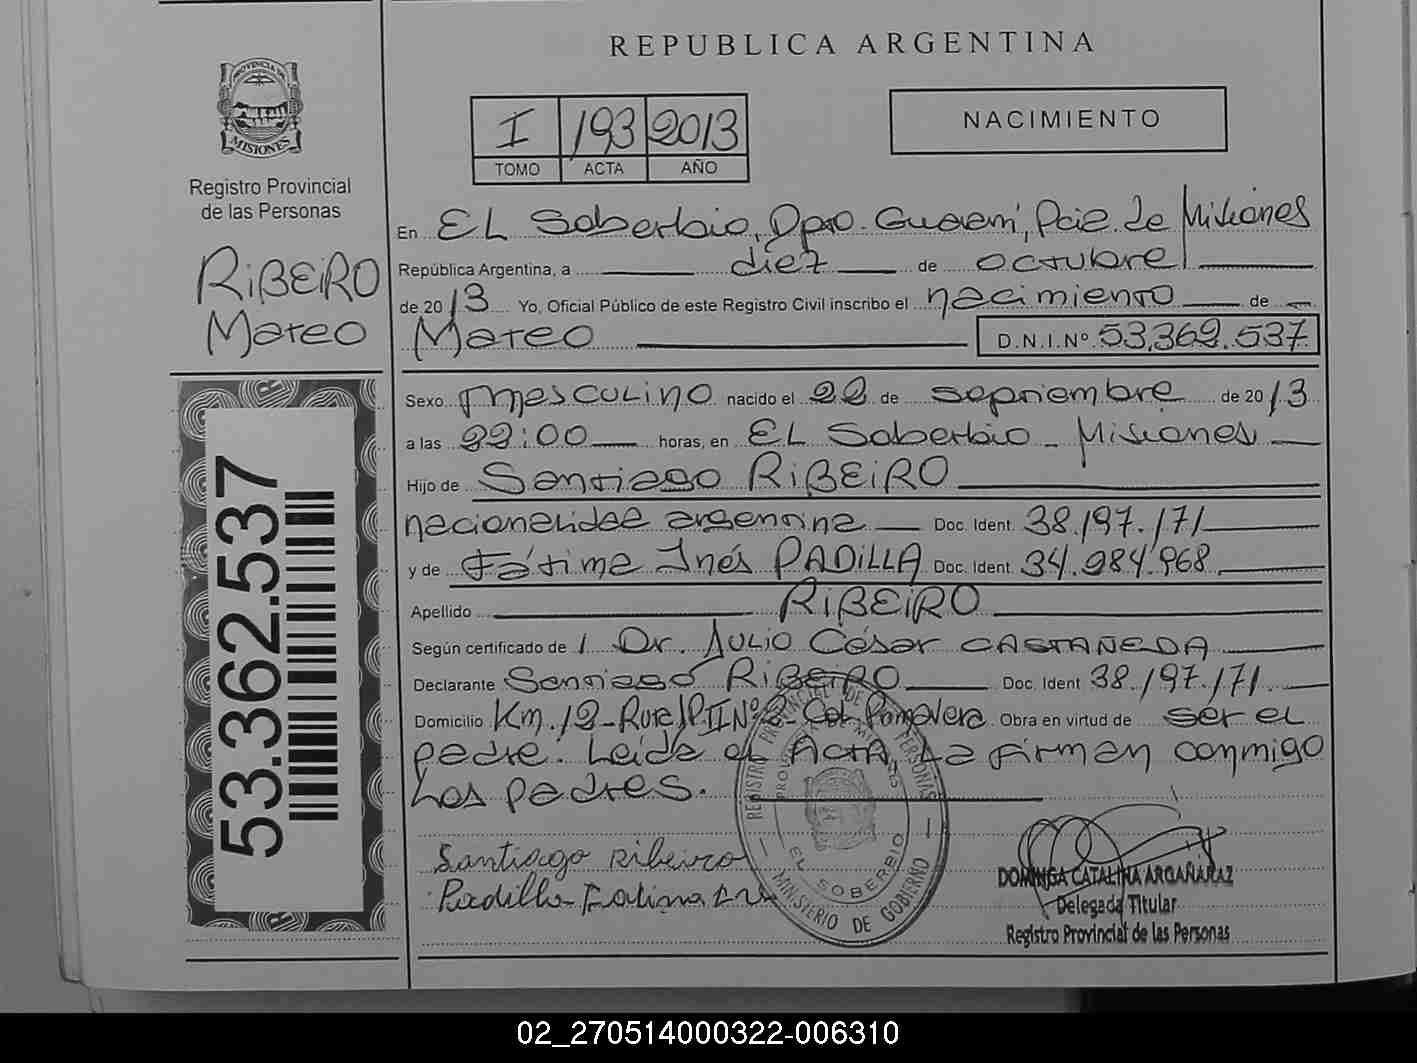 REPUBLICA ARGENTINA
PROVINCIA DE
MISIONES
Registro Provincial
de las Personas
RiBEiRO
Mateo
53.362.537
I 193 2013
TOMO ACTA AÑO
NACIMIENTO
En EL Soberbio, Dpto. Guaraní, Pcia. de Misiones
República Argentina, a diez de octubre
de 2013 Yo, Oficial Público de este Registro Civil inscribo el nacimiento de
Mateo D.N.I.Nº 53.362.537
Sexo masculino nacido el 22 de septiembre de 2013
a las 22:00 horas, en EL Soberbio - Misiones
Hijo de Santiago RiBEiRO
nacionalidad argentina Doc. Ident. 38.197.171
y de Fátima Inés PADiLLA Doc. Ident. 34.984.968
Apellido RiBEiRO
Según certificado de / Dr. Julio César CASTAÑEDA
Declarante Santiago RiBEiRO Doc. Ident 38.197.171
Domicilio Km. 12-Ruta Nº 2- Col. Primavera Obra en virtud de ser el
padre. Leída el Acta, La firman conmigo
Los padres.
REGISTRO PROVINCIAL DE LAS PERSONAS
EL SOBERBIO
MINISTERIO DE GOBIERNO
Santiago Ribeiro
Padilla Fatima
DOMINGA CATALINA ARGAÑARAZ
Delegada Titular
Registro Provincial de las Personas
02_270514000322-006310